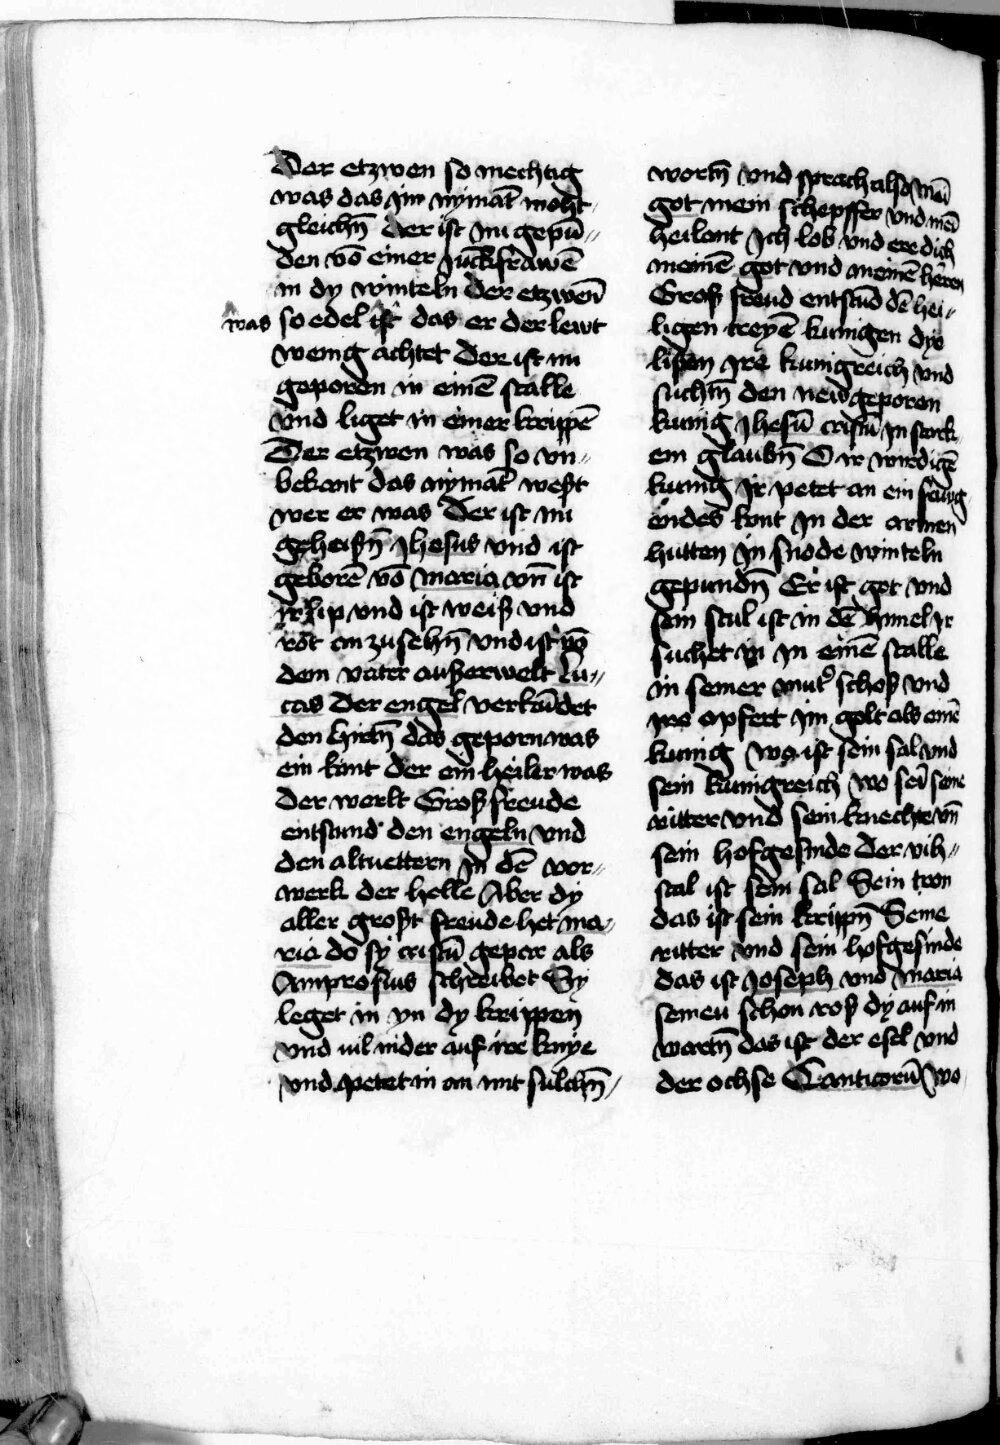 Der etzwen so mechtig
was das im nymāt moht
gleichn̄ der ist nu gepū〃
den vō einer Juckfrawē
in dy winteln der etzwen̄
was so edel ist das er der lewt
wenig achtet Der ist nu
geporen in einē stalle
vnd liget in einer krippē
Der etzwen was so vn〃
bekant das nymāt west
wer er was Der ist nu
geheißn̄ Jhesus vnd ist
geborē vō maria vn̄ ist
ir lip vnd ist weiß vnd
rot an zu sehn̄ vnd ist vō
dem vater außerwelt Lu〃
cas Der engel verkūdet
den hirtn̄ das geporn was
ein kint der ein heiler was
der werlt Groß freude
entstund den engeln vnd
den altuettern in dē vor〃
werk der helle Aber dy
aller großt freude het ma〃
ria do sy cristū gepar als
Amprosius schreibet Sy
leget in yn dy krippen
vnd uil nider auf ire knye
vnd petet in an mit sulchn̄
wortn̄ vnd sprach also mei
got mein schepffer vnd mei
heilant Ich lob vnd ere dich
meinē got vnd meinē heren
Groß freud entstūd dē hei〃
ligen treyē kunigen dye
lißen ire kunigreich vnd
suchtn̄ den new geporen
kunig Jhesū cristū in stark
em glaubn̄ O ir wirdigē
kunig ir petet an ein
endes kint In der armen
hutten in snode winteln
gepundn̄ Er ist got vnd
sein stul ist in dē himel ir
suchet in in einē stalle
in seiner mut' schoß vnd
ire opfert im golt als einē
kunig Wo ist sein sal vnd
sein kunigreich wo sei seine
ritter vnd sein knechte vn̄
sein hofgesinde Der vih〃
stal ist sein sal Sein tron
das ist sein krippn̄ Seine
ritter vnd sein hofgesinde
das ist Joseph vnd maria
seineu schon roß dy auf in
wartn̄ das ist der esel vnd
der ochse Canticorū wo